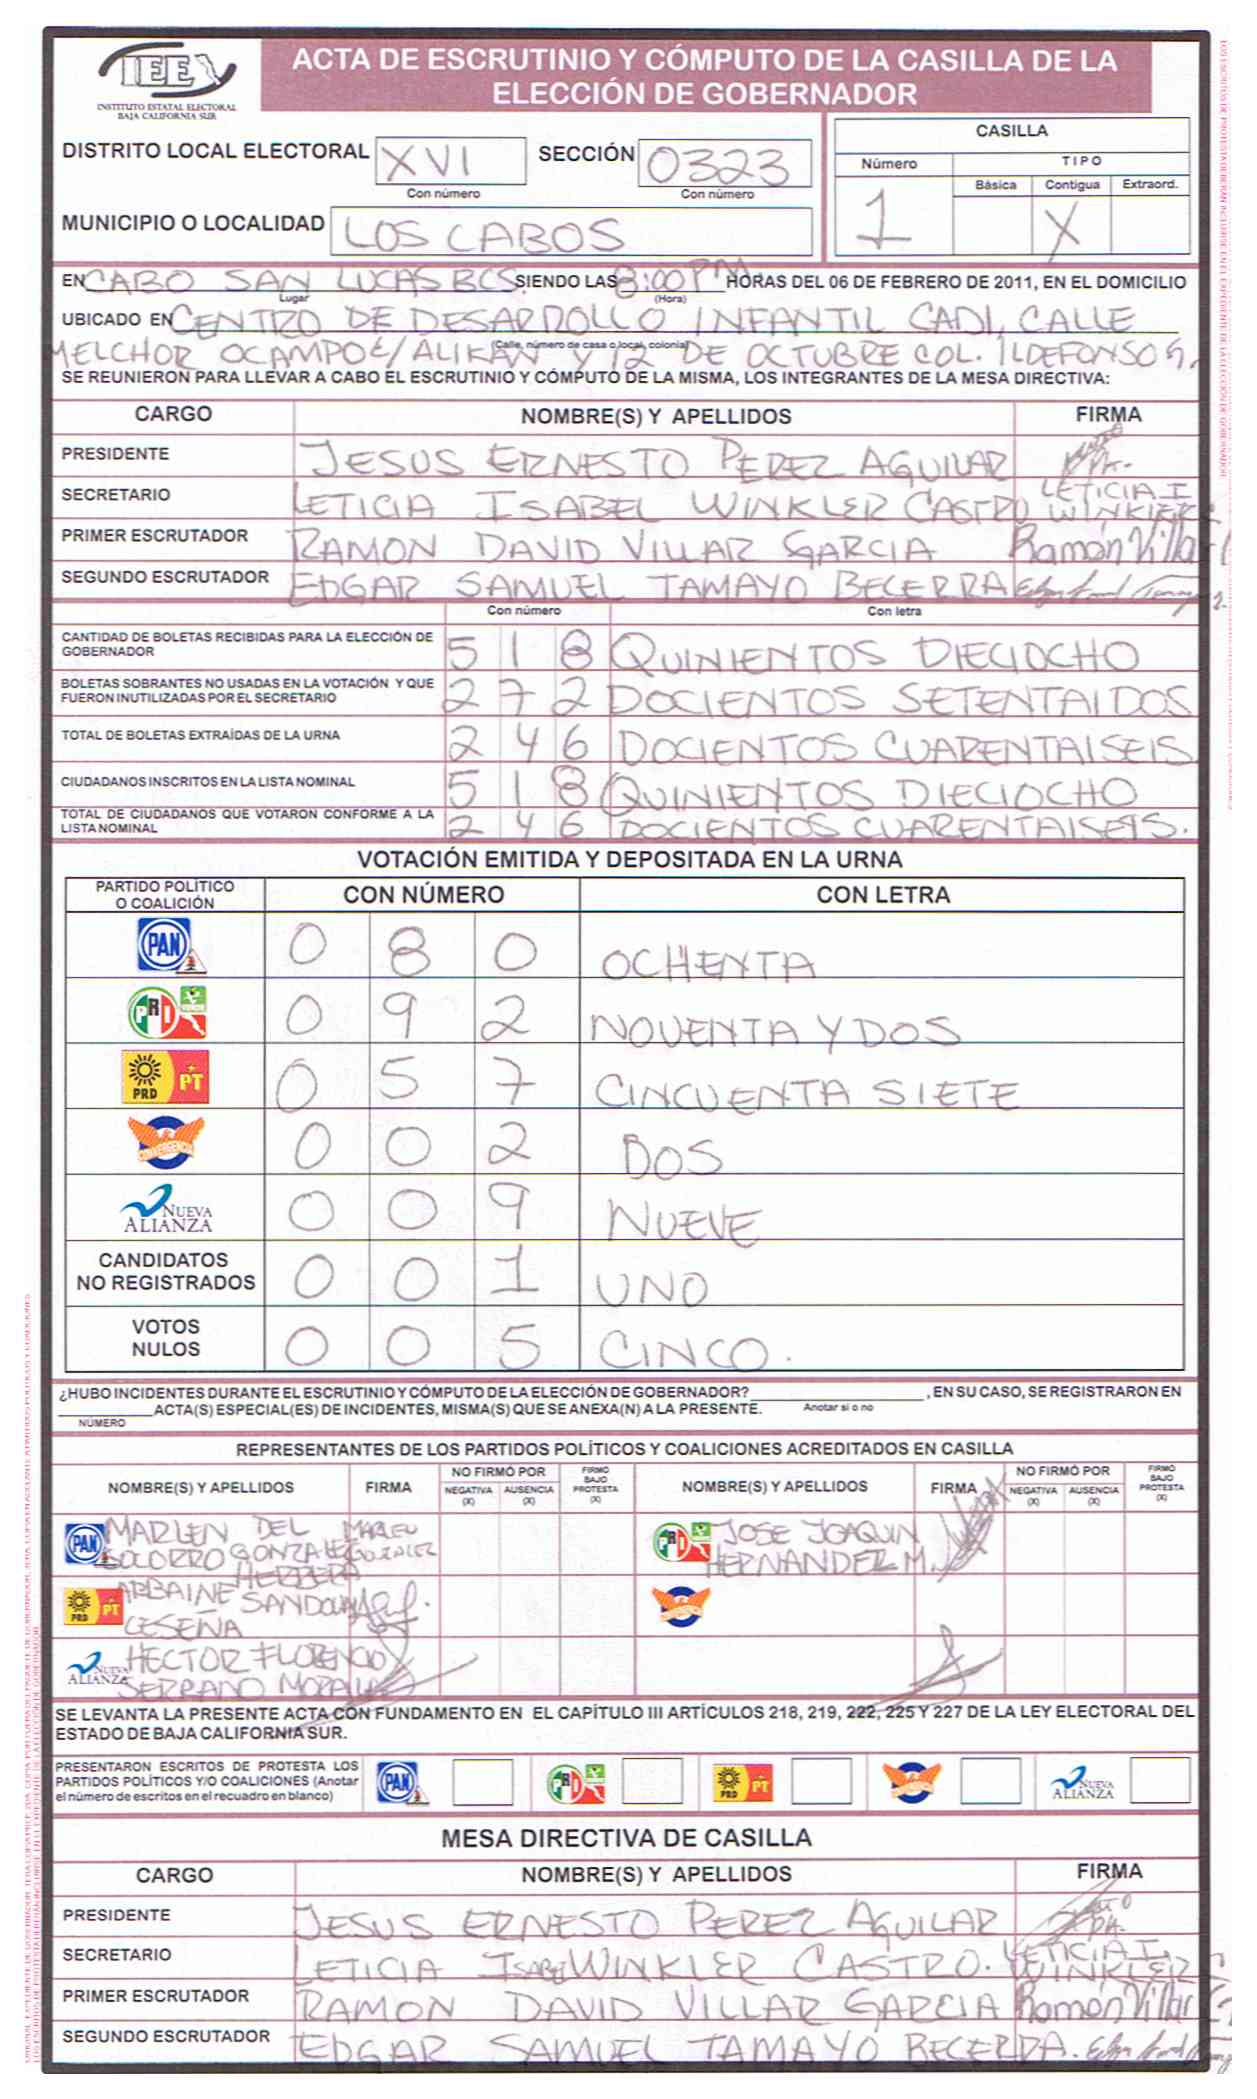 IEE
INSTITUTO ESTATAL ELECTORAL
BAJA CALIFORNIA SUR
ACTA DE ESCRUTINIO Y CÓMPUTO DE LA CASILLA DE LA
ELECCIÓN DE GOBERNADOR
DISTRITO LOCAL ELECTORAL XVI SECCIÓN 0323
Con número Con número
MUNICIPIO O LOCALIDAD LOS CABOS
CASILLA
Número TIPO
Básica Contigua Extraord.
1 X
EN CABO SAN LUCAS BCS. SIENDO LAS 8:00 PM HORAS DEL 06 DE FEBRERO DE 2011, EN EL DOMICILIO
Lugar (Hora)
UBICADO EN CENTRO DE DESARROLLO INFANTIL CADI, CALLE
(Calle, número de casa o local, colonia)
MELCHOR OCAMPO E/ALIKAN Y 12 DE OCTUBRE COL. ILDEFONSO G.
SE REUNIERON PARA LLEVAR A CABO EL ESCRUTINIO Y CÓMPUTO DE LA MISMA, LOS INTEGRANTES DE LA MESA DIRECTIVA:
CARGO NOMBRE(S) Y APELLIDOS FIRMA
PRESIDENTE JESUS ERNESTO PEREZ AGUILAR
SECRETARIO LETICIA ISABEL WINKLER CASTRO LETICIA I WINKLER C
PRIMER ESCRUTADOR RAMON DAVID VILLAR GARCIA Ramón Villar G
SEGUNDO ESCRUTADOR EDGAR SAMUEL TAMAYO BECERRA
Con número Con letra
CANTIDAD DE BOLETAS RECIBIDAS PARA LA ELECCIÓN DE
GOBERNADOR 5 1 8 QUINIENTOS DIECIOCHO
BOLETAS SOBRANTES NO USADAS EN LA VOTACIÓN Y QUE
FUERON INUTILIZADAS POR EL SECRETARIO 2 7 2 DOCIENTOS SETENTAIDOS
TOTAL DE BOLETAS EXTRAÍDAS DE LA URNA 2 4 6 DOCIENTOS CUARENTAISEIS
CIUDADANOS INSCRITOS EN LA LISTA NOMINAL 5 1 8 QUINIENTOS DIECIOCHO
TOTAL DE CIUDADANOS QUE VOTARON CONFORME A LA
LISTA NOMINAL 2 4 6 DOCIENTOS CUARENTAISEIS.
VOTACIÓN EMITIDA Y DEPOSITADA EN LA URNA
PARTIDO POLÍTICO
O COALICIÓN CON NÚMERO CON LETRA
PAN 0 8 0 OCHENTA
PRI 0 9 2 NOVENTA Y DOS
PRD PT 0 5 7 CINCUENTA SIETE
CONVERGENCIA 0 0 2 DOS
NUEVA ALIANZA 0 0 9 NUEVE
CANDIDATOS
NO REGISTRADOS 0 0 1 UNO
VOTOS
NULOS 0 0 5 CINCO.
¿HUBO INCIDENTES DURANTE EL ESCRUTINIO Y CÓMPUTO DE LA ELECCIÓN DE GOBERNADOR? , EN SU CASO, SE REGISTRARON EN
ACTA(S) ESPECIAL(ES) DE INCIDENTES, MISMA(S) QUE SE ANEXA(N) A LA PRESENTE. Anotar si o no
NÚMERO
REPRESENTANTES DE LOS PARTIDOS POLÍTICOS Y COALICIONES ACREDITADOS EN CASILLA
NOMBRE(S) Y APELLIDOS FIRMA NO FIRMÓ POR NEGATIVA (X) AUSENCIA (X) FIRMÓ BAJO PROTESTA (X) NOMBRE(S) Y APELLIDOS FIRMA NO FIRMÓ POR NEGATIVA (X) AUSENCIA (X) FIRMÓ BAJO PROTESTA (X)
PAN MARLEN DEL SOCORRO GONZALEZ HERRERA MARLEN GONZALEZ
PRI JOSE JOAQUIN HERNANDEZ M.
PRD PT ARBAINE SANDOVAL CESEÑA
NUEVA ALIANZA HECTOR FLORENCIO SERRANO MORALES
SE LEVANTA LA PRESENTE ACTA CON FUNDAMENTO EN EL CAPÍTULO III ARTÍCULOS 218, 219, 222, 225 Y 227 DE LA LEY ELECTORAL DEL
ESTADO DE BAJA CALIFORNIA SUR.
PRESENTARON ESCRITOS DE PROTESTA LOS
PARTIDOS POLÍTICOS Y/O COALICIONES (Anotar
el número de escritos en el recuadro en blanco)
PAN PRI PRD PT NUEVA ALIANZA
MESA DIRECTIVA DE CASILLA
CARGO NOMBRE(S) Y APELLIDOS FIRMA
PRESIDENTE JESUS ERNESTO PEREZ AGUILAR
SECRETARIO LETICIA ISABEL WINKLER CASTRO. LETICIA I. WINKLER C
PRIMER ESCRUTADOR RAMON DAVID VILLAR GARCIA Ramón Villar G
SEGUNDO ESCRUTADOR EDGAR SAMUEL TAMAYO BECERRA.